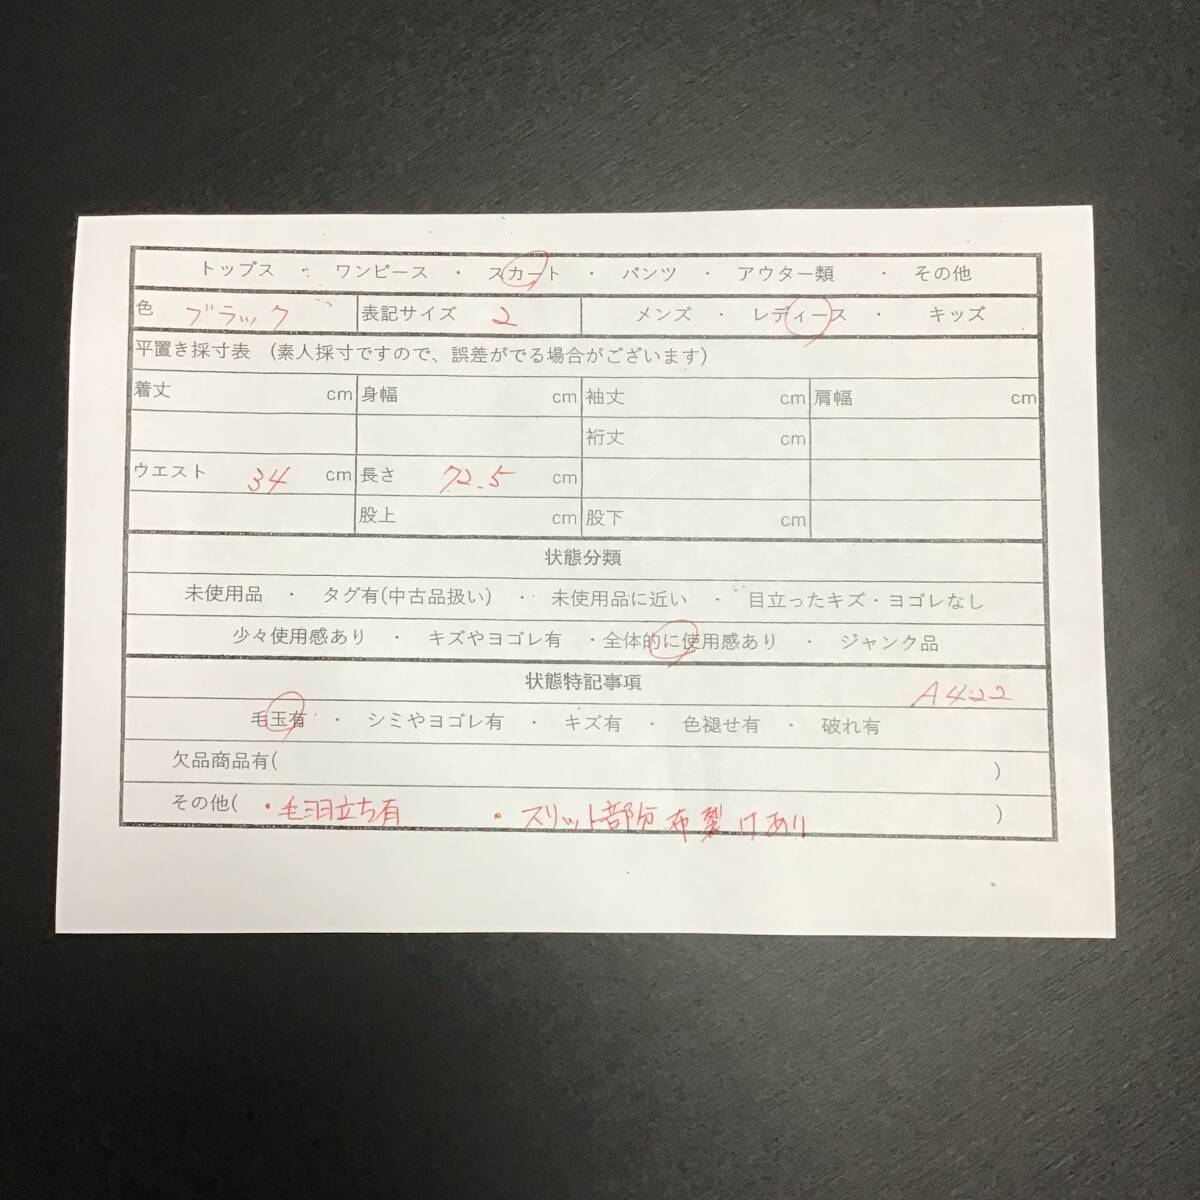 トップス ・ ワンピース ・ スカート ・ パンツ ・ アウター類 ・ その他
色 ブラック 表記サイズ 2 メンズ ・ レディース ・ キッズ
平置き採寸表 (素人採寸ですので、誤差がでる場合がございます)
着丈 cm 身幅 cm 袖丈 cm 肩幅 cm
裄丈 cm
ウエスト 34 cm 長さ 72.5 cm
股上 cm 股下 cm
状態分類
未使用品 ・ タグ有(中古品扱い) ・ 未使用品に近い ・ 目立ったキズ・ヨゴレなし
少々使用感あり ・ キズやヨゴレ有 ・全体的に使用感あり ・ ジャンク品
状態特記事項
A422
毛玉有 ・ シミやヨゴレ有 ・ キズ有 ・ 色褪せ有 ・ 破れ有
欠品商品有( )
その他( ・毛羽立ち有 ・スリット部分布裂けあり )